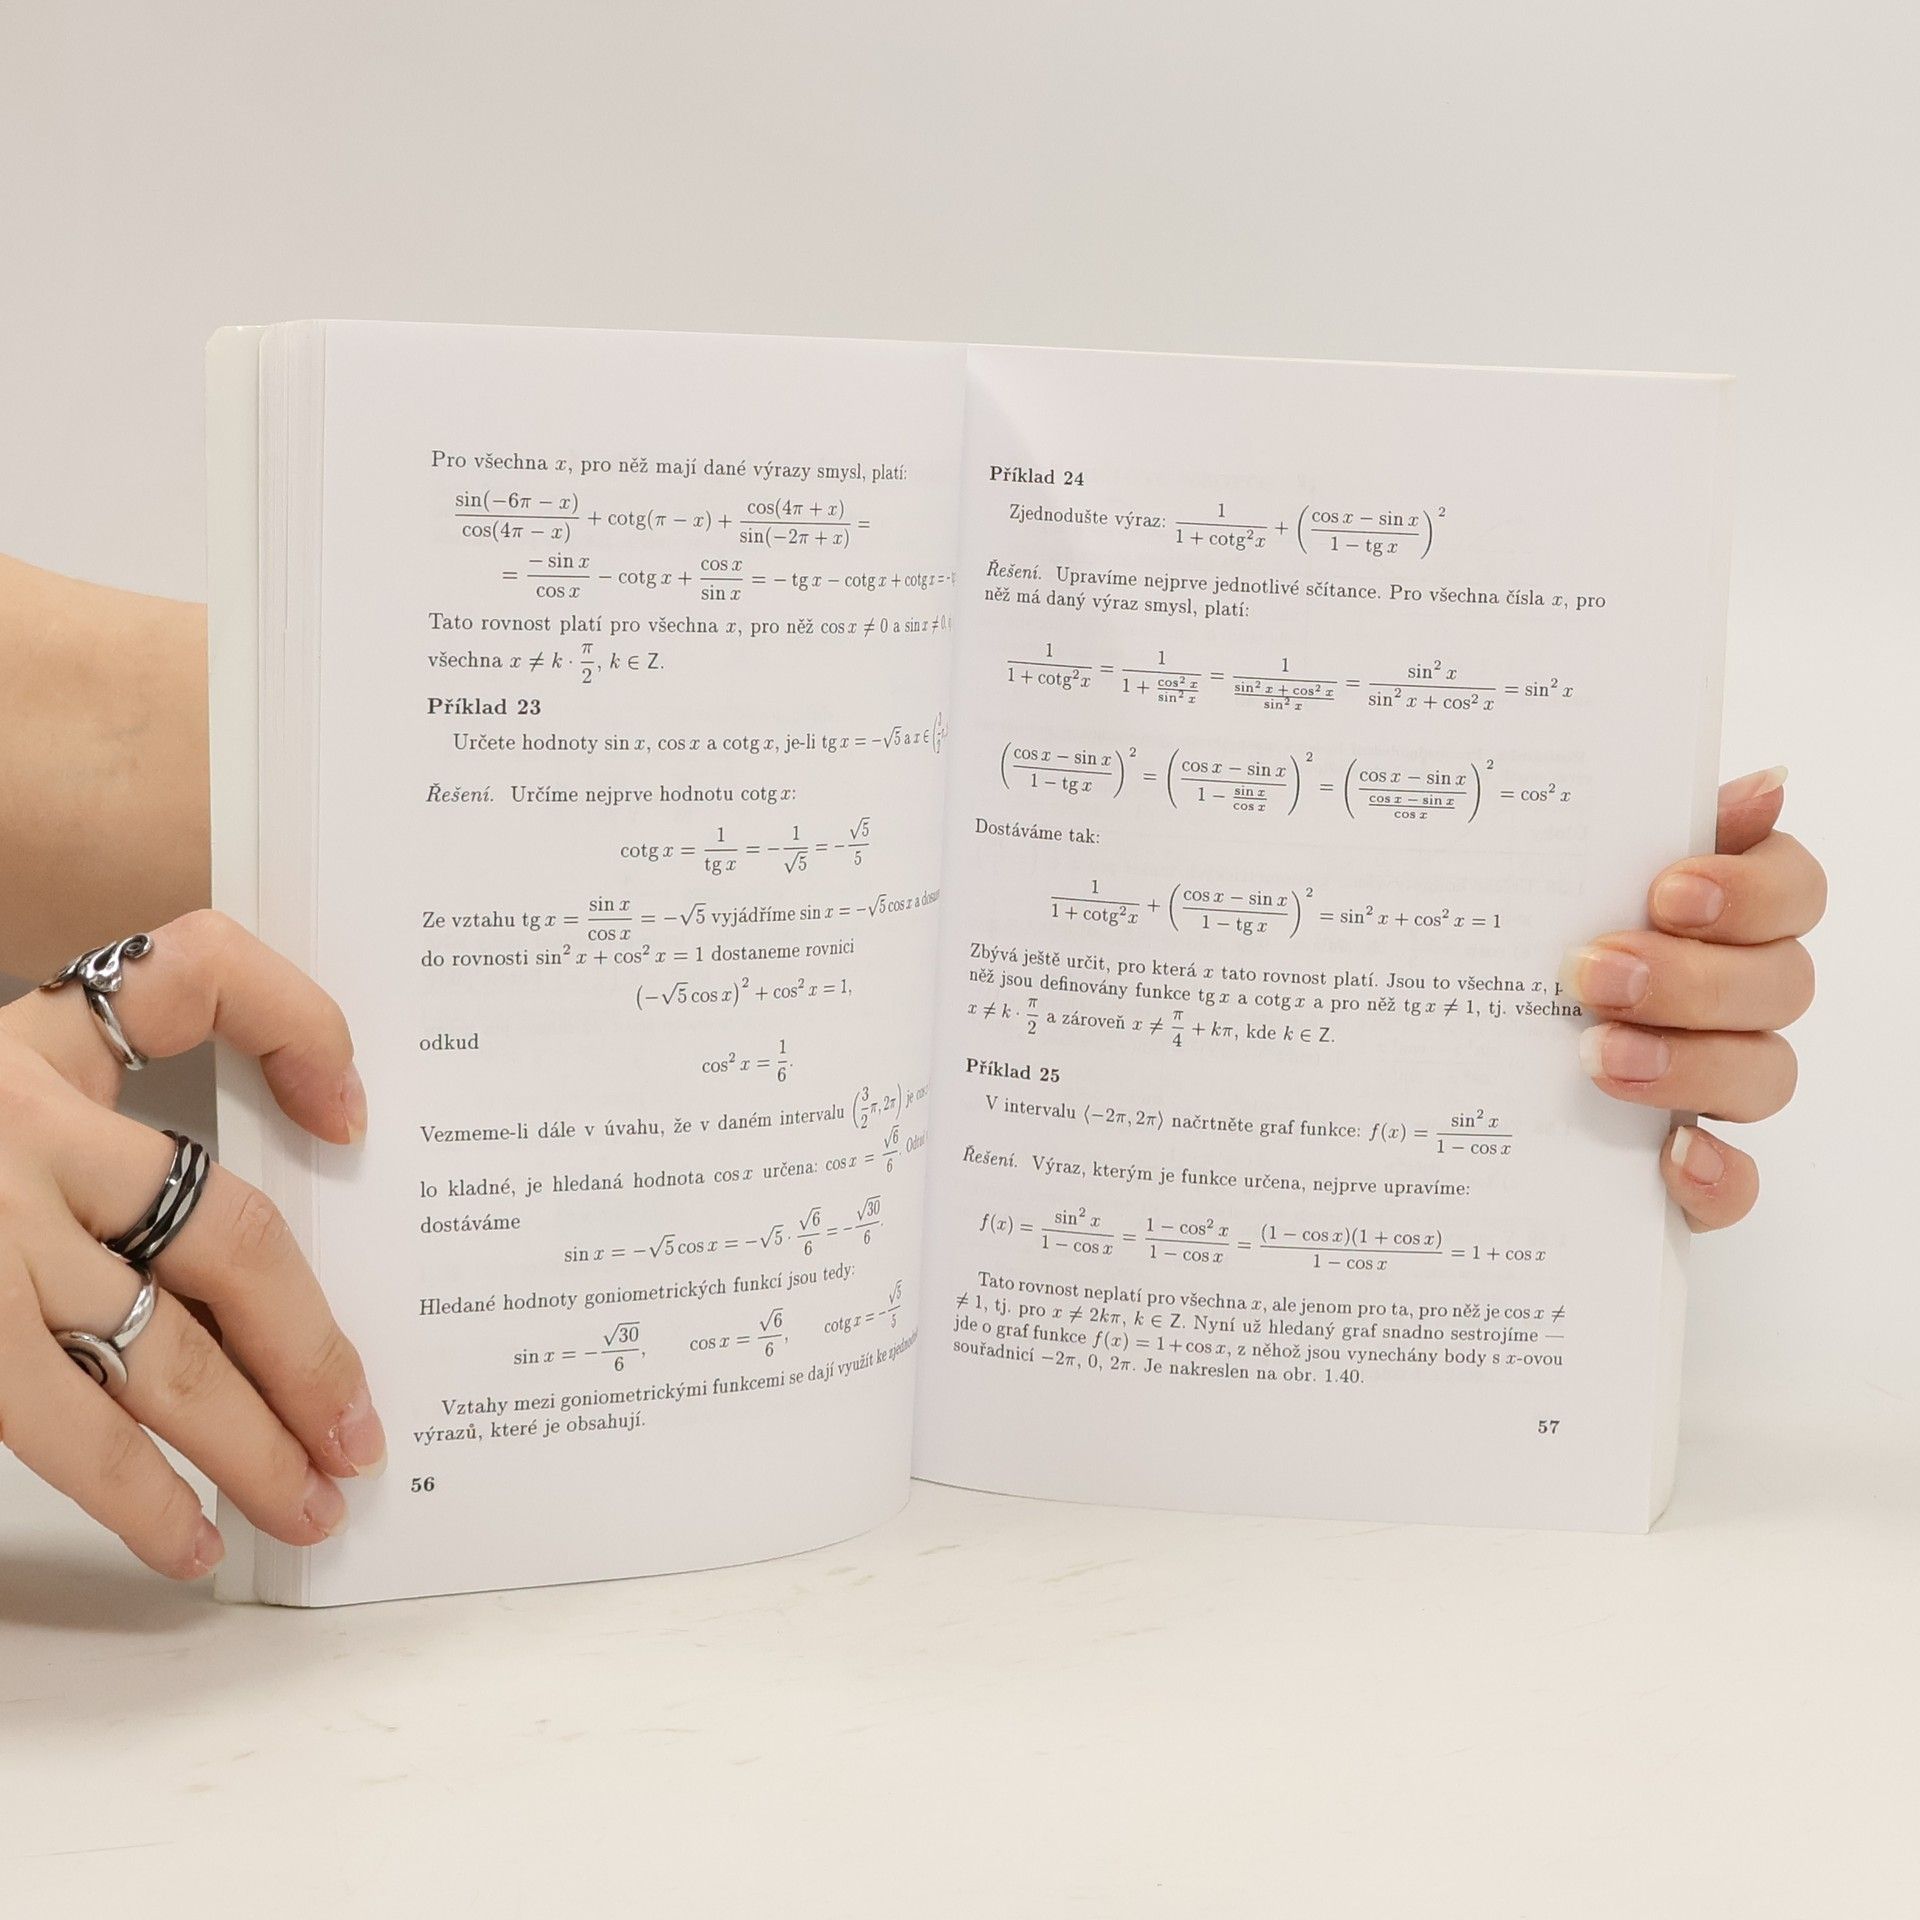 Pro všechna x, pro něž mají dané výrazy smysl, platí:
sin(−6π − x)/cos(4π − x) + cotg(π − x) + cos(4π + x)/sin(−2π + x) =
= − sin x/cos x − cotg x + cos x/sin x = − tg x − cotg x + cotg x = −
Tato rovnost platí pro všechna x, pro něž cos x ≠ 0 a sin x ≠ 0,
všechna x ≠ k · π/2, k ∈ Z.
Příklad 23
Určete hodnoty sin x, cos x a cotg x, je-li tg x = −√5 a x ∈
Řešení. Určíme nejprve hodnotu cotg x:
cotg x = 1/tg x = −1/√5 = −√5/5
Ze vztahu tg x = sin x/cos x = −√5 vyjádříme sin x = −√5 cos x a
do rovnosti sin² x + cos² x = 1 dostaneme rovnici
(−√5 cos x)² + cos² x = 1,
odkud
cos² x = 1/6.
Vezmeme-li dále v úvahu, že v daném intervalu (3/2 π, 2π) je
lo kladné, je hledaná hodnota cos x určena: cos x = √6/6.
dostáváme
sin x = −√5 cos x = −√5 · √6/6 = −√30/6.
Hledané hodnoty goniometrických funkcí jsou tedy:
sin x = −√30/6, cos x = √6/6, cotg x = −√5/5
Vztahy mezi goniometrickými funkcemi se dají využít ke
výrazů, které je obsahují.
56
Příklad 24
Zjednodušte výraz: 1/(1 + cotg²x) + ((cos x − sin x)/(1 − tg x))²
Řešení. Upravíme nejprve jednotlivé sčítance. Pro všechna čísla x, pro
něž má daný výraz smysl, platí:
1/(1 + cotg²x) = 1/(1 + cos² x/sin² x) = 1/((sin² x + cos² x)/sin² x) = sin² x/(sin² x + cos² x) = sin² x
((cos x − sin x)/(1 − tg x))² = ((cos x − sin x)/(1 − sin x/cos x))² = ((cos x − sin x)/((cos x − sin x)/cos x))² = cos² x
Dostáváme tak:
1/(1 + cotg²x) + ((cos x − sin x)/(1 − tg x))² = sin² x + cos² x = 1
Zbývá ještě určit, pro která x tato rovnost platí. Jsou to všechna x,
něž jsou definovány funkce tg x a cotg x a pro něž tg x ≠ 1, tj. všechna
x ≠ k · π/2 a zároveň x ≠ π/4 + kπ, kde k ∈ Z.
Příklad 25
V intervalu ⟨−2π, 2π⟩ načrtněte graf funkce: f(x) = sin² x/(1 − cos x)
Řešení. Výraz, kterým je funkce určena, nejprve upravíme:
f(x) = sin² x/(1 − cos x) = (1 − cos² x)/(1 − cos x) = (1 − cos x)(1 + cos x)/(1 − cos x) = 1 + cos x
Tato rovnost neplatí pro všechna x, ale jenom pro ta, pro něž je cos x ≠
≠ 1, tj. pro x ≠ 2kπ, k ∈ Z. Nyní už hledaný graf snadno sestrojíme —
jde o graf funkce f(x) = 1 + cos x, z něhož jsou vynechány body s x-ovou
souřadnicí −2π, 0, 2π. Je nakreslen na obr. 1.40.
57